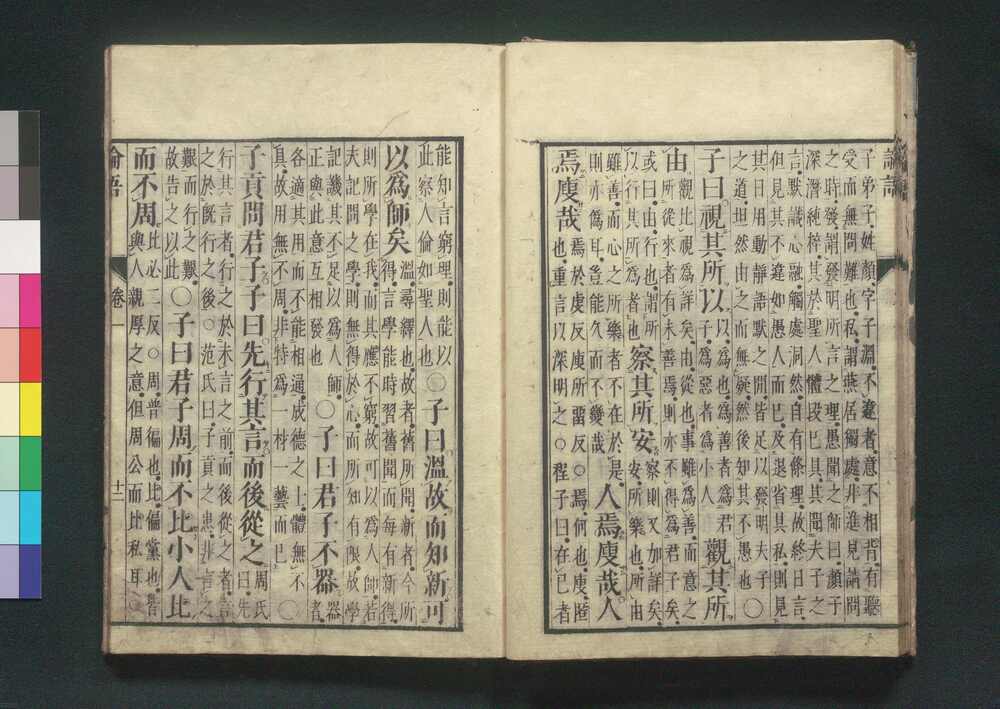 子弟子姓顏字子淵不違者意不相背有聽
受而無問難也私謂燕居獨處非進見請問
之時發謂發明所言之理愚聞之師曰顏子
深潛純粹其於聖人體段已具其聞夫子之
言默識心融觸處洞然自有條理故終日言
但見其不違如愚人而已及退省其私則見
其日用動靜語默之閒皆足以發明夫子
之道坦然由之而無疑然後知其不愚也○
子曰視其所以以爲也爲善者爲君子爲惡者爲小人觀其所
由觀比視爲詳矣由從也事雖爲善而意之所從來者有未善焉則亦不得爲君子矣
或曰由行也謂所以行其所爲者也察其所安察則又加詳矣安所樂也所由
雖善而心之所樂者不在於是則亦爲耳豈能久而不變哉人焉廋哉人
焉廋哉焉於虔反廋所留反○焉何也廋匿也重言以深明之○程子曰在己者
能知言窮理則能以此察人倫如聖人也○子曰溫故而知新可
以爲師矣溫尋繹也故者舊所聞新者今所得言學能時習舊聞而每有新得
則所學在我而其應不窮故可以爲人師若
夫記問之學則無得於心而所知有限故學
記譏其不足以爲人師正與此意互相發也○子曰君子不器器者
各適其用而不能相通成德之士體無不
具故用無不周非特爲一材一藝而已○
子貢問君子子曰先行其言而後從之周氏曰先
行其言者行之於未言之前而後從之者言
之於既行之後○范氏曰子貢之患非言之
艱而行之艱故告之以此○子曰君子周而不比小人比
而不周比必二反○周普徧也比偏黨也皆與人親厚之意但周公而比私耳○
論語 卷一 十二